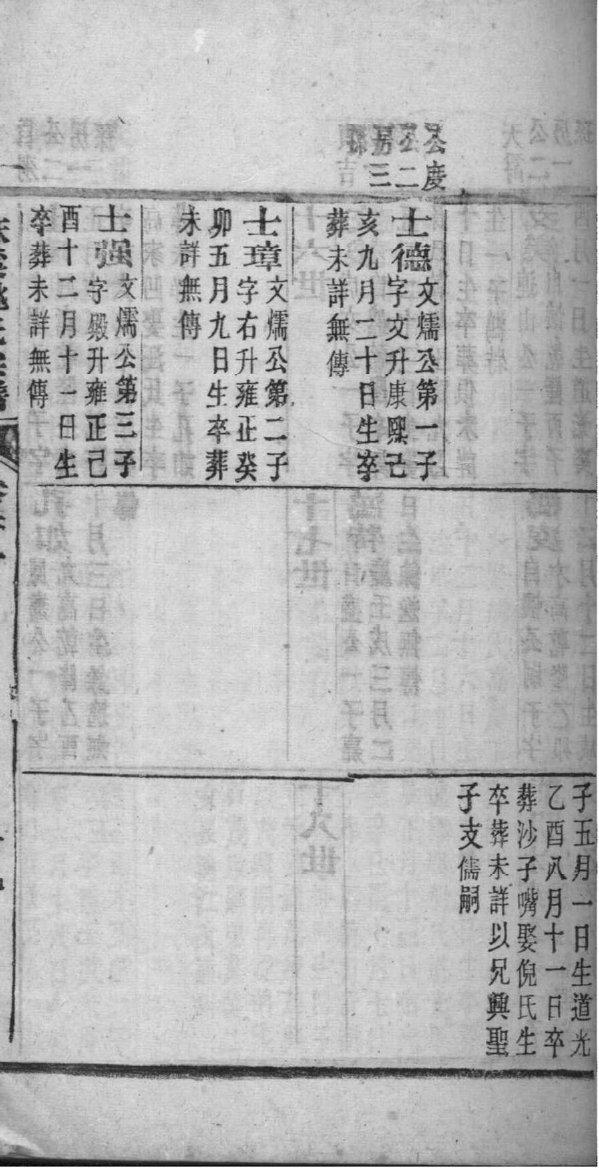 公慶
公二
房三
孫
士德文燸公第一子
字文升康熙己
亥九月二十日生卒
葬未詳無傳
士璋文燸公第二子
字右升雍正癸
卯五月九日生卒葬
未詳無傳
士强文燸公第三子
字殿升雍正己
酉十二月十一日生
卒葬未詳無傳
子五月一日生道光
乙酉八月十一日卒
葬沙子嘴娶倪氏生
卒葬未詳以兄興聖
子支儒嗣